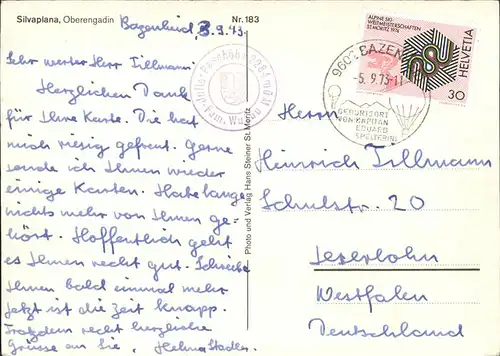 Silvaplana, Oberengadin
Nr. 183
Bazenheid, 3.9.73.
Sehr werter Herr Tillmann!
Herzlichen Dank
für Ihre Karte. Die hat
mich riesig gefreut. Gerne
sende ich Ihnen wieder
einige Karten. Habe lange
nichts mehr von Ihnen ge-
hört. Hoffentlich geht
es Ihnen recht gut. Schreibe
Ihnen bald einmal mehr
jetzt ist die Zeit knapp.
Trotzdem recht herzliche
Grüsse an Sie, Helma Stadler.
Photo und Verlag Hans Steiner St. Moritz
ALPINE SKI-
WELTMEISTERSCHAFTEN
ST. MORITZ 1974
HELVETIA
30
9602 BAZEN
-5. 9.73-11
GEBURTSORT
VON KAPITÄN
EDUARD
SPELTERINI
Herrn
Heinrich Tillmann
Schulstr. 20
Iserlohn
Westfalen
Deutschland